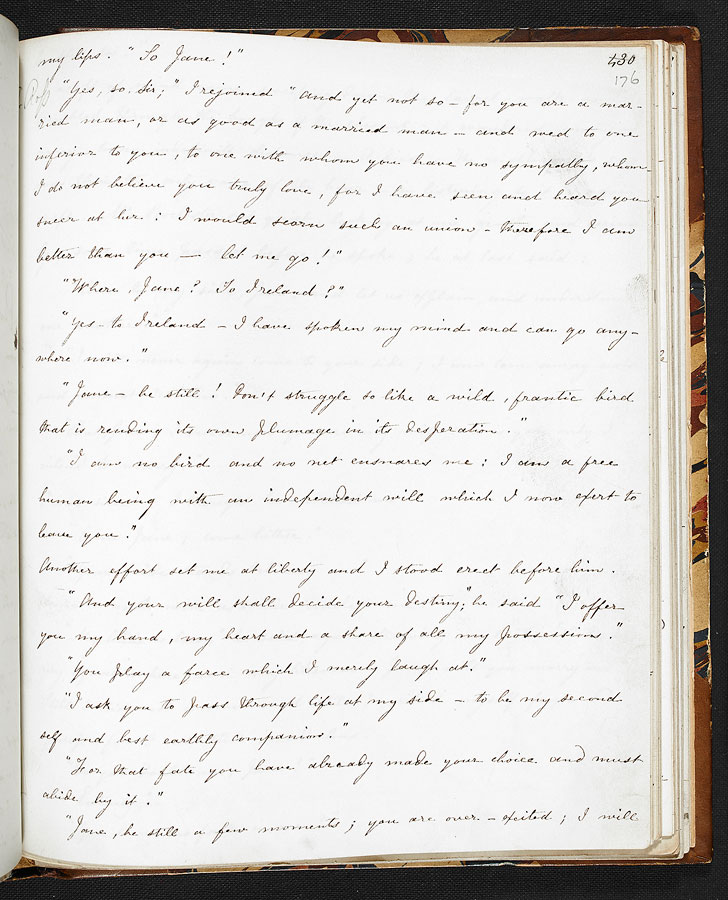 430
176
my lips. "So Jane!"
"Yes, so, Sir;" I rejoined "and yet not so — for you are a mar-
ried man, or as good as a married man — and wed to one
inferior to you, to one with whom you have no sympathy, whom
I do not believe you truly love, for I have seen and heard you
sneer at her: I would scorn such an union — therefore I am
better than you — let me go!"
"Where, Jane? To Ireland?"
"Yes — to Ireland — I have spoken my mind and can go any-
where now."
"Jane — be still! Don't struggle so like a wild, frantic bird
that is rending its own plumage in its desperation."
"I am no bird and no net ensnares me: I am a free
human being with an independent will which I now exert to
leave you."
Another effort set me at liberty and I stood erect before him.
"And your will shall decide your destiny;" he said "I offer
you my hand, my heart and a share of all my possessions."
"You play a farce which I merely laugh at."
"I ask you to pass through life at my side — to be my second
self and best earthly companion."
"For that fate you have already made your choice and must
abide by it."
"Jane, be still a few moments; you are over-excited; I will